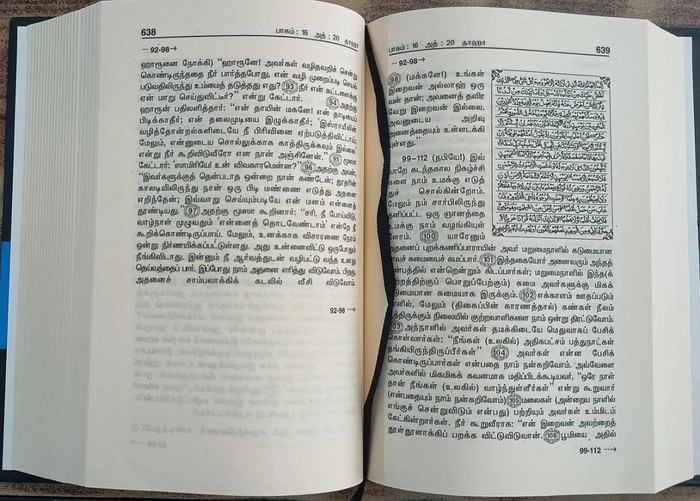 638
பாகம் : 16 அத் : 20 தாஹா
92-98→
ஹாரூனை நோக்கி) "ஹாரூனே! அவர்கள் வழிதவறிச் சென்று
கொண்டிருந்ததை நீர் பார்த்தபோது, என் வழி முறைப்படி செயல்
படுவதிலிருந்து உம்மைத் தடுத்தது எது? (93) நீர் என் கட்டளைக்கு
ஏன் மாறு செய்துவிட்டீர்?" என்று கேட்டார். (94) அதற்கு
ஹாரூன் பதிலளித்தார்: "என் தாயின் மகனே! என் தாடியைப்
பிடிக்காதீர்; என் தலைமுடியை இழுக்காதீர்; 'இஸ்ராயீலின்
வழித்தோன்றல்களிடையே நீ பிரிவினை ஏற்படுத்திவிட்டாய்;
மேலும், என்னுடைய சொல்லுக்காக காத்திருக்கவும் இல்லை'
என்று நீர் கூறிவிடுவீரோ என நான் அஞ்சினேன்." (95) மூஸா
கேட்டார்: "ஸாமிரியே! உன் விவகாரமென்ன?" (96) அதற்கு அவன்,
"இவர்களுக்குத் தென்படாத ஒன்றை நான் கண்டேன்; தூதரின்
காலடியிலிருந்து நான் ஒரு பிடி மண்ணை எடுத்து அதனை
எறிந்தேன்; இவ்வாறு செய்யும்படியே என் மனம் என்னைத்
தூண்டியது. (97) அதற்கு மூஸா கூறினார்: "சரி, நீ போய்விடு,
வாழ்நாள் முழுவதும் 'என்னைத் தொடவேண்டாம்' என்றே நீ
கூறிக்கொண்டிருப்பாய். மேலும், உனக்காக விசாரணை நேரம்
ஒன்று நிர்ணயிக்கப்பட்டுள்ளது. அது உன்னைவிட்டு ஒருபோதும்
நீங்கிவிடாது. இன்னும் நீ ஆர்வத்துடன் வழிபட்டு வந்த உனது
தெய்வத்தைப் பார். இப்போது நாம் அதனை எரித்து விடுவோம். பிறகு
அதனைச் சாம்பலாக்கிக் கடலில் வீசி விடுவோம்.
92-98→
பாகம் : 16 அத் : 20 தாஹா
639
92-98→
(98) (மக்களே!) உங்கள்
இறைவன் அல்லாஹ் ஒரு
வன் தான்; அவனைத் தவிர
வேறு இறைவன் இல்லை.
அவனுடைய அறிவு
அனைத்தையும் உள்ளடக்கி
யுள்ளது."
99-112 (நபியே!) இவ்
வாறே கடந்தகால நிகழ்ச்சி
களை நாம் உமக்கு எடுத்
துச் சொல்கின்றோம்.
மேலும் நம் சார்பிலிருந்து
தனிப்பட்ட ஒரு ஞானத்தை
உமக்கு நாம் வழங்கியுள்
ளோம். (100) யாரேனும்
அதனைப் புறக்கணிப்பாராயின் அவர் மறுமைநாளில் கடுமையான
பாவச் சுமையைச் சுமப்பார். (101) இத்தகையோர் அனைவரும் அந்தத்
துன்பத்தில் என்றென்றும் கிடப்பார்கள்; மறுமைநாளில் இந்த(க்
குற்றத்திற்குப் பொறுப்பேற்கும்) சுமை அவர்களுக்கு மிகக்
கடுமையான சுமையாக இருக்கும். (102) எக்காளம் ஊதப்படும்
நாளில், மேலும் (திகைப்பின் காரணத்தால்) கண்கள் நீலம்
பூத்திருக்கும் நிலையில் குற்றவாளிகளை நாம் ஒன்று திரட்டுவோம்.
(103) அந்நாளில் அவர்கள் தமக்கிடையே மெதுவாகப் பேசிக்
கொள்வார்கள்: "நீங்கள் (உலகில்) அதிகபட்சம் பத்துநாட்கள்
தங்கியிருந்திருப்பீர்கள்" (104) அவர்கள் என்ன பேசிக்
கொண்டிருப்பார்கள் என்பதை நாம் நன்கறிவோம். அவ்வேளை
அவர்களில் மிகமிகக் கவனமாக மதிப்பிடக்கூடியவர், "ஒரே நாள்
தான் நீங்கள் (உலகில்) வாழ்ந்துள்ளீர்கள்" என்று கூறுவார்
(என்பதையும் நாம் நன்கறிவோம்) (105) மலைகள் (அன்றைய நாளில்
எங்குச் சென்றுவிடும் என்பது) பற்றியும் அவர்கள் உம்மிடம்
கேட்கின்றார்கள். நீர் கூறுவீராக: "என் இறைவன் அவற்றைத்
தூள்தூளாக்கிப் பறக்க விட்டுவிடுவான். (106) பூமியை அதில்
99-112→